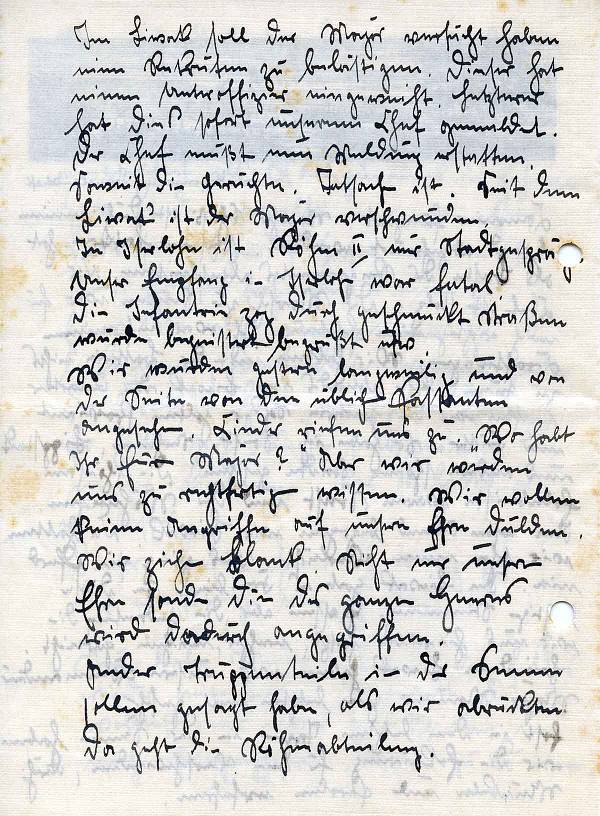 Im Biwak soll der Major versucht haben
einen Rekruten zu belästigen. Dieser hat
einen Unteroffizier eingeweiht. Letzterer
hat dies sofort unserem Chef gemeldet.
Der Chef mußt nun Meldung erstatten.
Soweit die Gerüchte. Tatsach ist. Seit dem
Biwak ist der Major verschwunden
In Iserlohn ist "Röhm II" nur Stadtgespräch
Unser Empfang in Iserlohn war fatal
Die Infantrie zog durch geschmückt Straßen
wurde begeistert begrüßt usw.
Wir wurden gestern langweilig und von
der Seite von den üblich Passanten
angesehen. Kinder riefen uns zu. "Wo habt
Ihr Euer Major?" Aber wir werden
uns zu rechtfertig wissen. Wir wollen
keinen Angriffe auf unsere Ehre dulden.
Wir ziehe blank. Nicht nur unsere
Ehre sonde die des ganze Heeres
wird dadurch angegriffen.
Ander Truppenteile in der Senne
sollen gesagt habe, als wir abrückten
Da geht die Röhmabteilung.